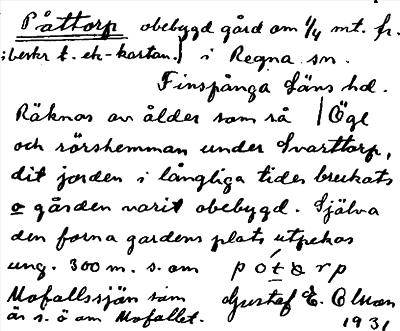 Påttorp obebygd gård om 1/4 mt. fr.
(beskr t. ek-kartan.) i Regna sn.
Finspånga Läns hd.
Räknas av ålder som rå / Ögl
och rörshemman under Svarttorp,
dit jorden i långliga tider brukats
o gården varit obebygd. Själva
den forna gårdens plats utpekas
ung. 300 m. s. om
Mofallssjön som
är s. ö om Mofallet.
Gustaf E. Olsson
1931